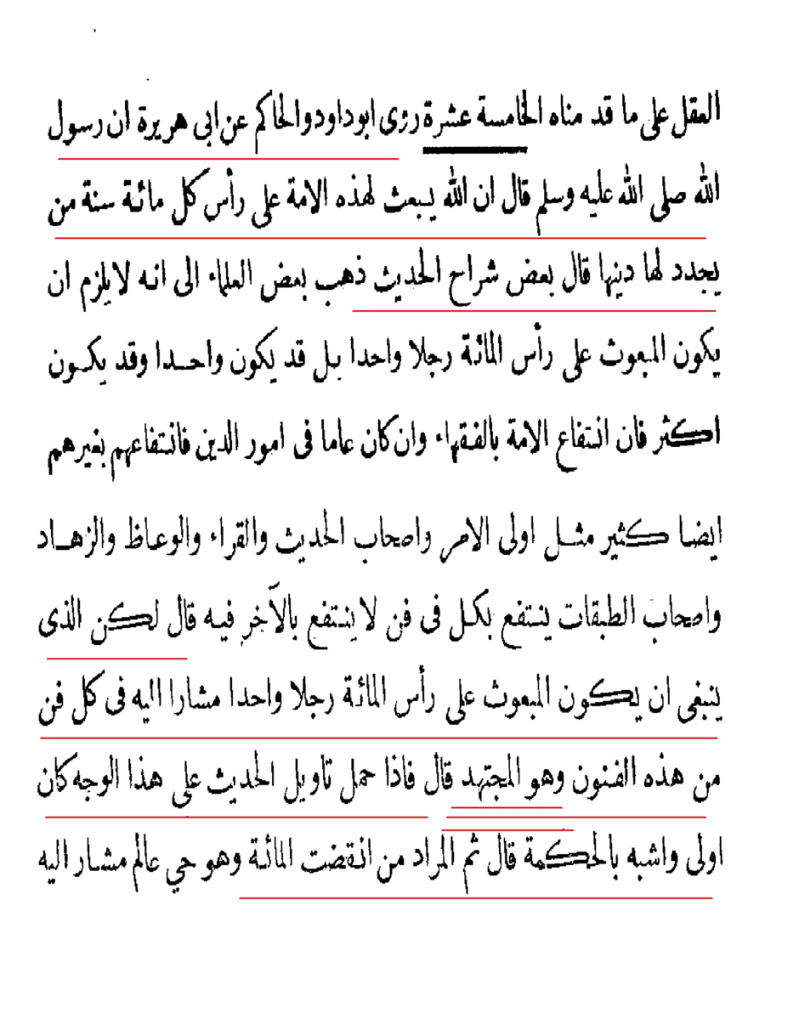 العقل على ما قد مناه الخامسة عشرة روى ابوداود والحاكم عن ابى هريرة ان رسول
الله صلى الله عليه وسلم قال ان الله يبعث لهذه الامة على رأس كل مائة سنة من
يجدد لها دينها قال بعض شراح الحديث ذهب بعض العلماء الى انه لا يلزم ان
يكون المبعوث على رأس المائة رجلا واحدا بل قد يكون واحدا وقد يكون
اكثر فان انتفاع الامة بالفقهاء وان كان عاما فى امور الدين فانتفاعهم بغيرهم
ايضا كثير مثل اولى الامر واصحاب الحديث والقراء والوعاظ والزهاد
واصحاب الطبقات ينتفع بكل فى فن لا ينتفع بالآخر فيه قال لكن الذى
ينبغى ان يكون المبعوث على رأس المائة رجلا واحدا مشارا اليه فى كل فن
من هذه الفنون وهو المجتهد قال فاذا حمل تاويل الحديث على هذا الوجه كان
اولى واشبه بالحكمة قال ثم المراد من انقضت المائة وهو حي عالم مشار اليه